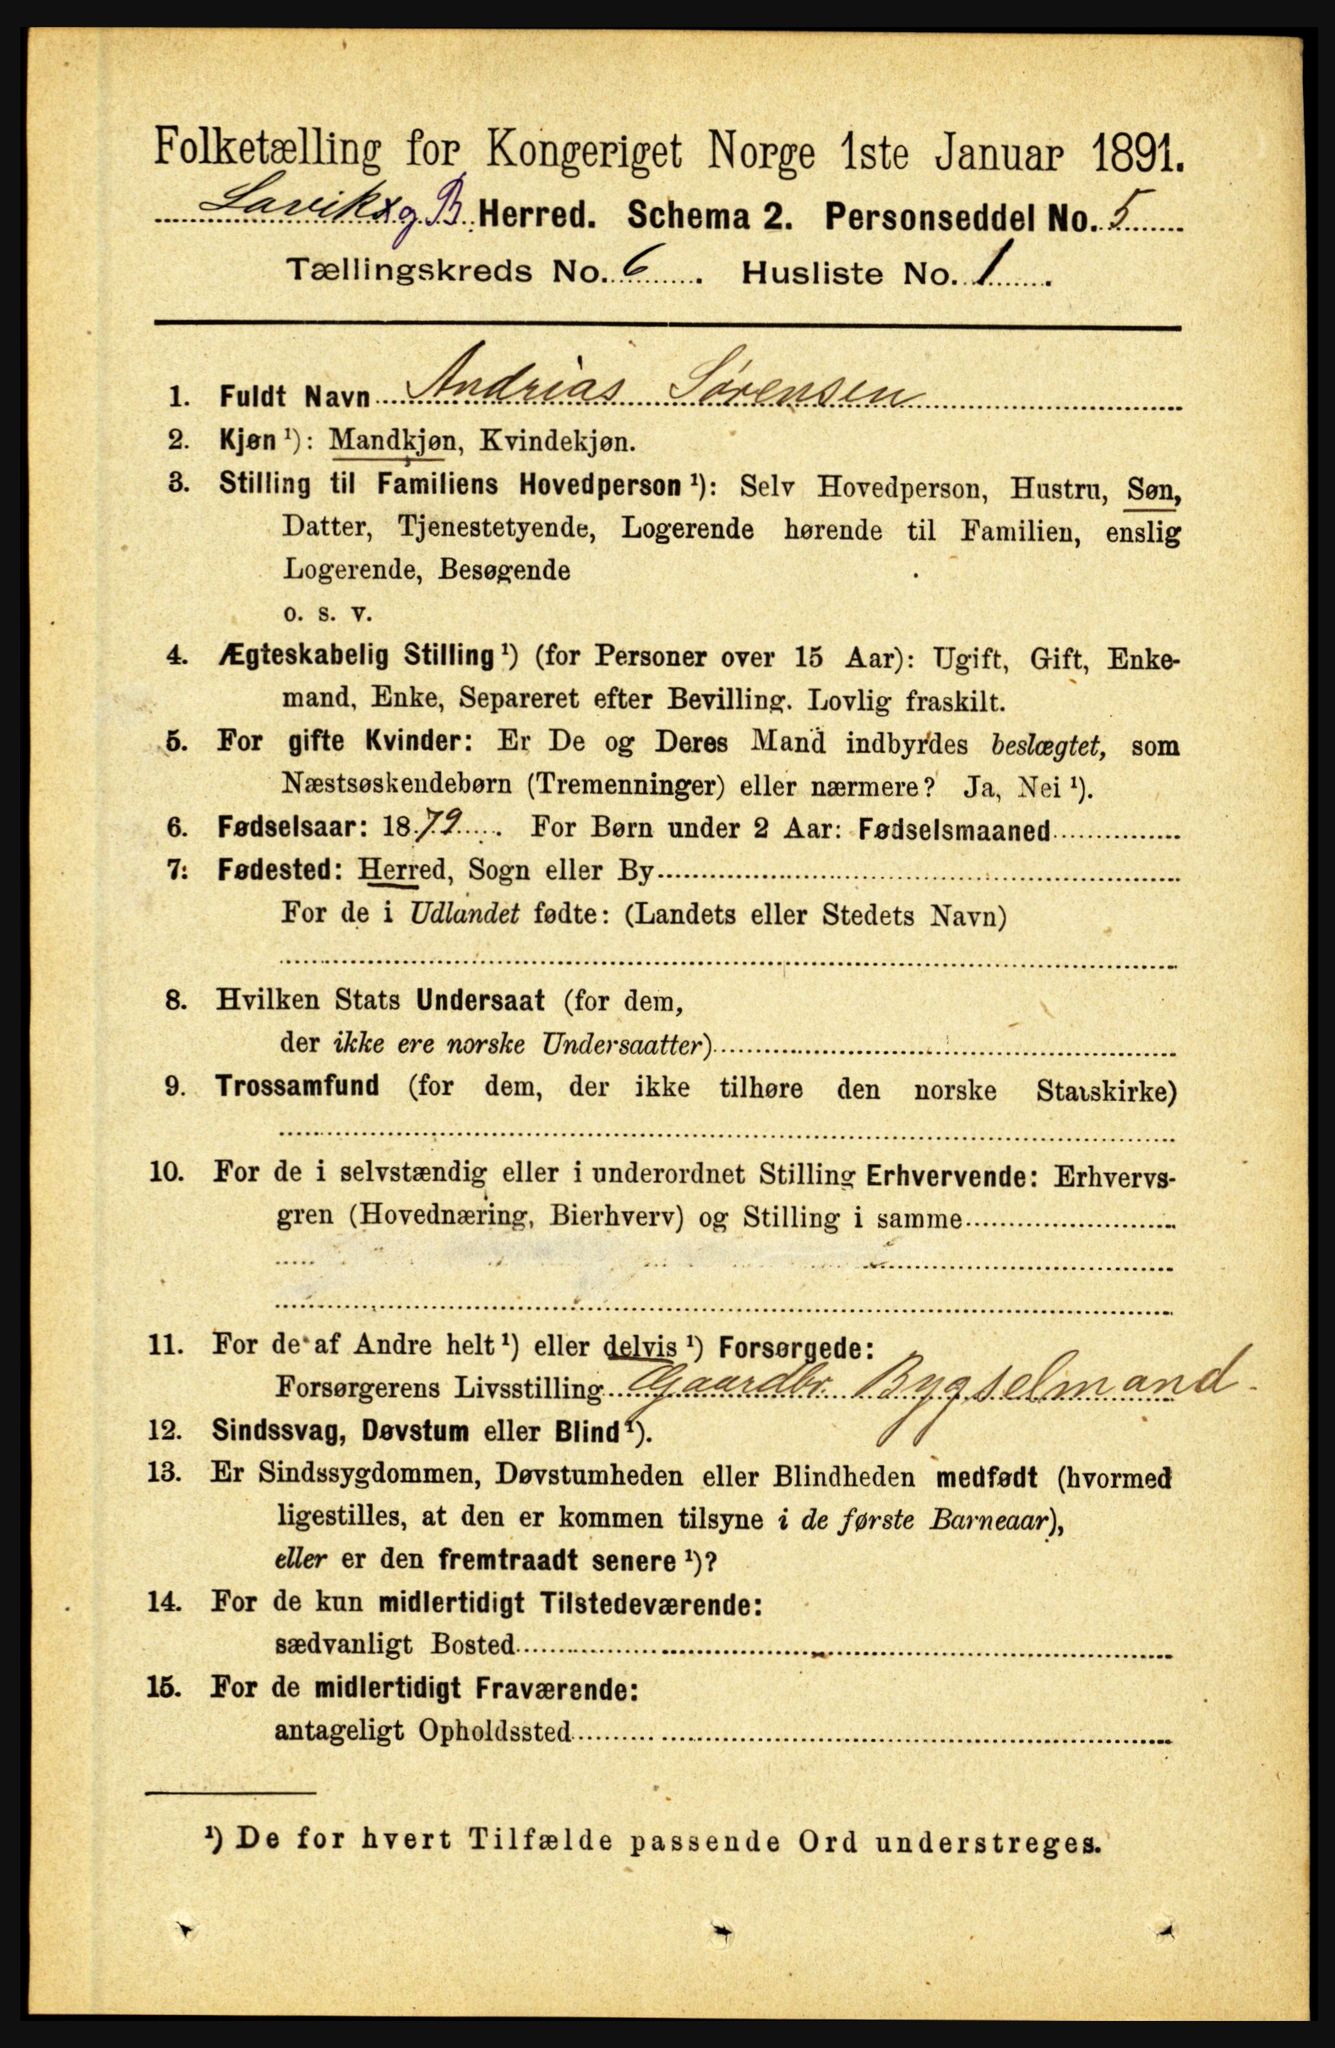 Folketælling for Kongeriget Norge 1ste Januar 1891.
Lavik og B. Herred. Schema 2. Personseddel No. 5
Tællingskreds No. 6 . Husliste No. 1 .
1. Fuldt Navn Andrias Sørensen
2. Kjøn ¹): Mandkjøn, Kvindekjøn.
3. Stilling til Familiens Hovedperson ¹): Selv Hovedperson, Hustru, Søn,
Datter, Tjenestetyende, Logerende hørende til Familien, enslig
Logerende, Besøgende
o. s. v.
4. Ægteskabelig Stilling ¹) (for Personer over 15 Aar): Ugift, Gift, Enke-
mand, Enke, Separeret efter Bevilling. Lovlig fraskilt.
5. For gifte Kvinder: Er De og Deres Mand indbyrdes beslægtet, som
Næstsøskendebørn (Tremenninger) eller nærmere? Ja, Nei ¹).
6. Fødselsaar: 1879 . For Børn under 2 Aar: Fødselsmaaned
7: Fødested: Herred, Sogn eller By
For de i Udlandet fødte: (Landets eller Stedets Navn)
8. Hvilken Stats Undersaat (for dem,
der ikke ere norske Undersaatter)
9. Trossamfund (for dem, der ikke tilhøre den norske Statskirke)
10. For de i selvstændig eller i underordnet Stilling Erhvervende: Erhvervs-
gren (Hovednæring, Bierhverv) og Stilling i samme
11. For de af Andre helt ¹) eller delvis ¹) Forsørgede:
Forsørgerens Livsstilling Gaardbr. Bygselmand.
12. Sindssvag, Døvstum eller Blind ¹).
13. Er Sindssygdommen, Døvstumheden eller Blindheden medfødt (hvormed
ligestilles, at den er kommen tilsyne i de første Barneaar),
eller er den fremtraadt senere ¹)?
14. For de kun midlertidigt Tilstedeværende:
sædvanligt Bosted
15. For de midlertidigt Fraværende:
antageligt Opholdssted
¹) De for hvert Tilfælde passende Ord understreges.